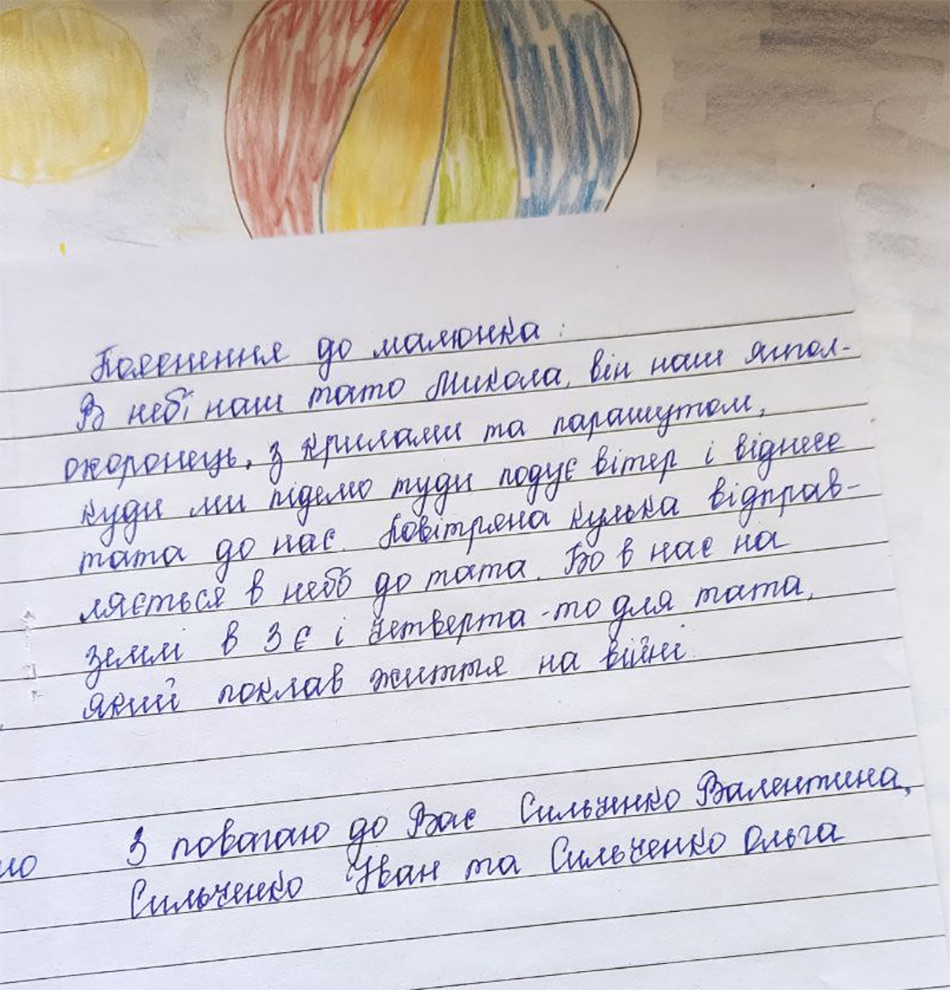 Пояснення до малюнка:
В небі наш тато Микола, він наш янгол-
охоронець, з крилами та парашутом,
куди ми підемо туди подує вітер і віднесе
тата до нас. Повітряна кулька відправ-
ляється в небо до тата. Бо в нас на
землі в 3 є і четверта - то для тата,
який поклав життя на війні.
З повагаю до Вас Сильченко Валентина,
ло
Сильченко Іван та Сильченко Ольга